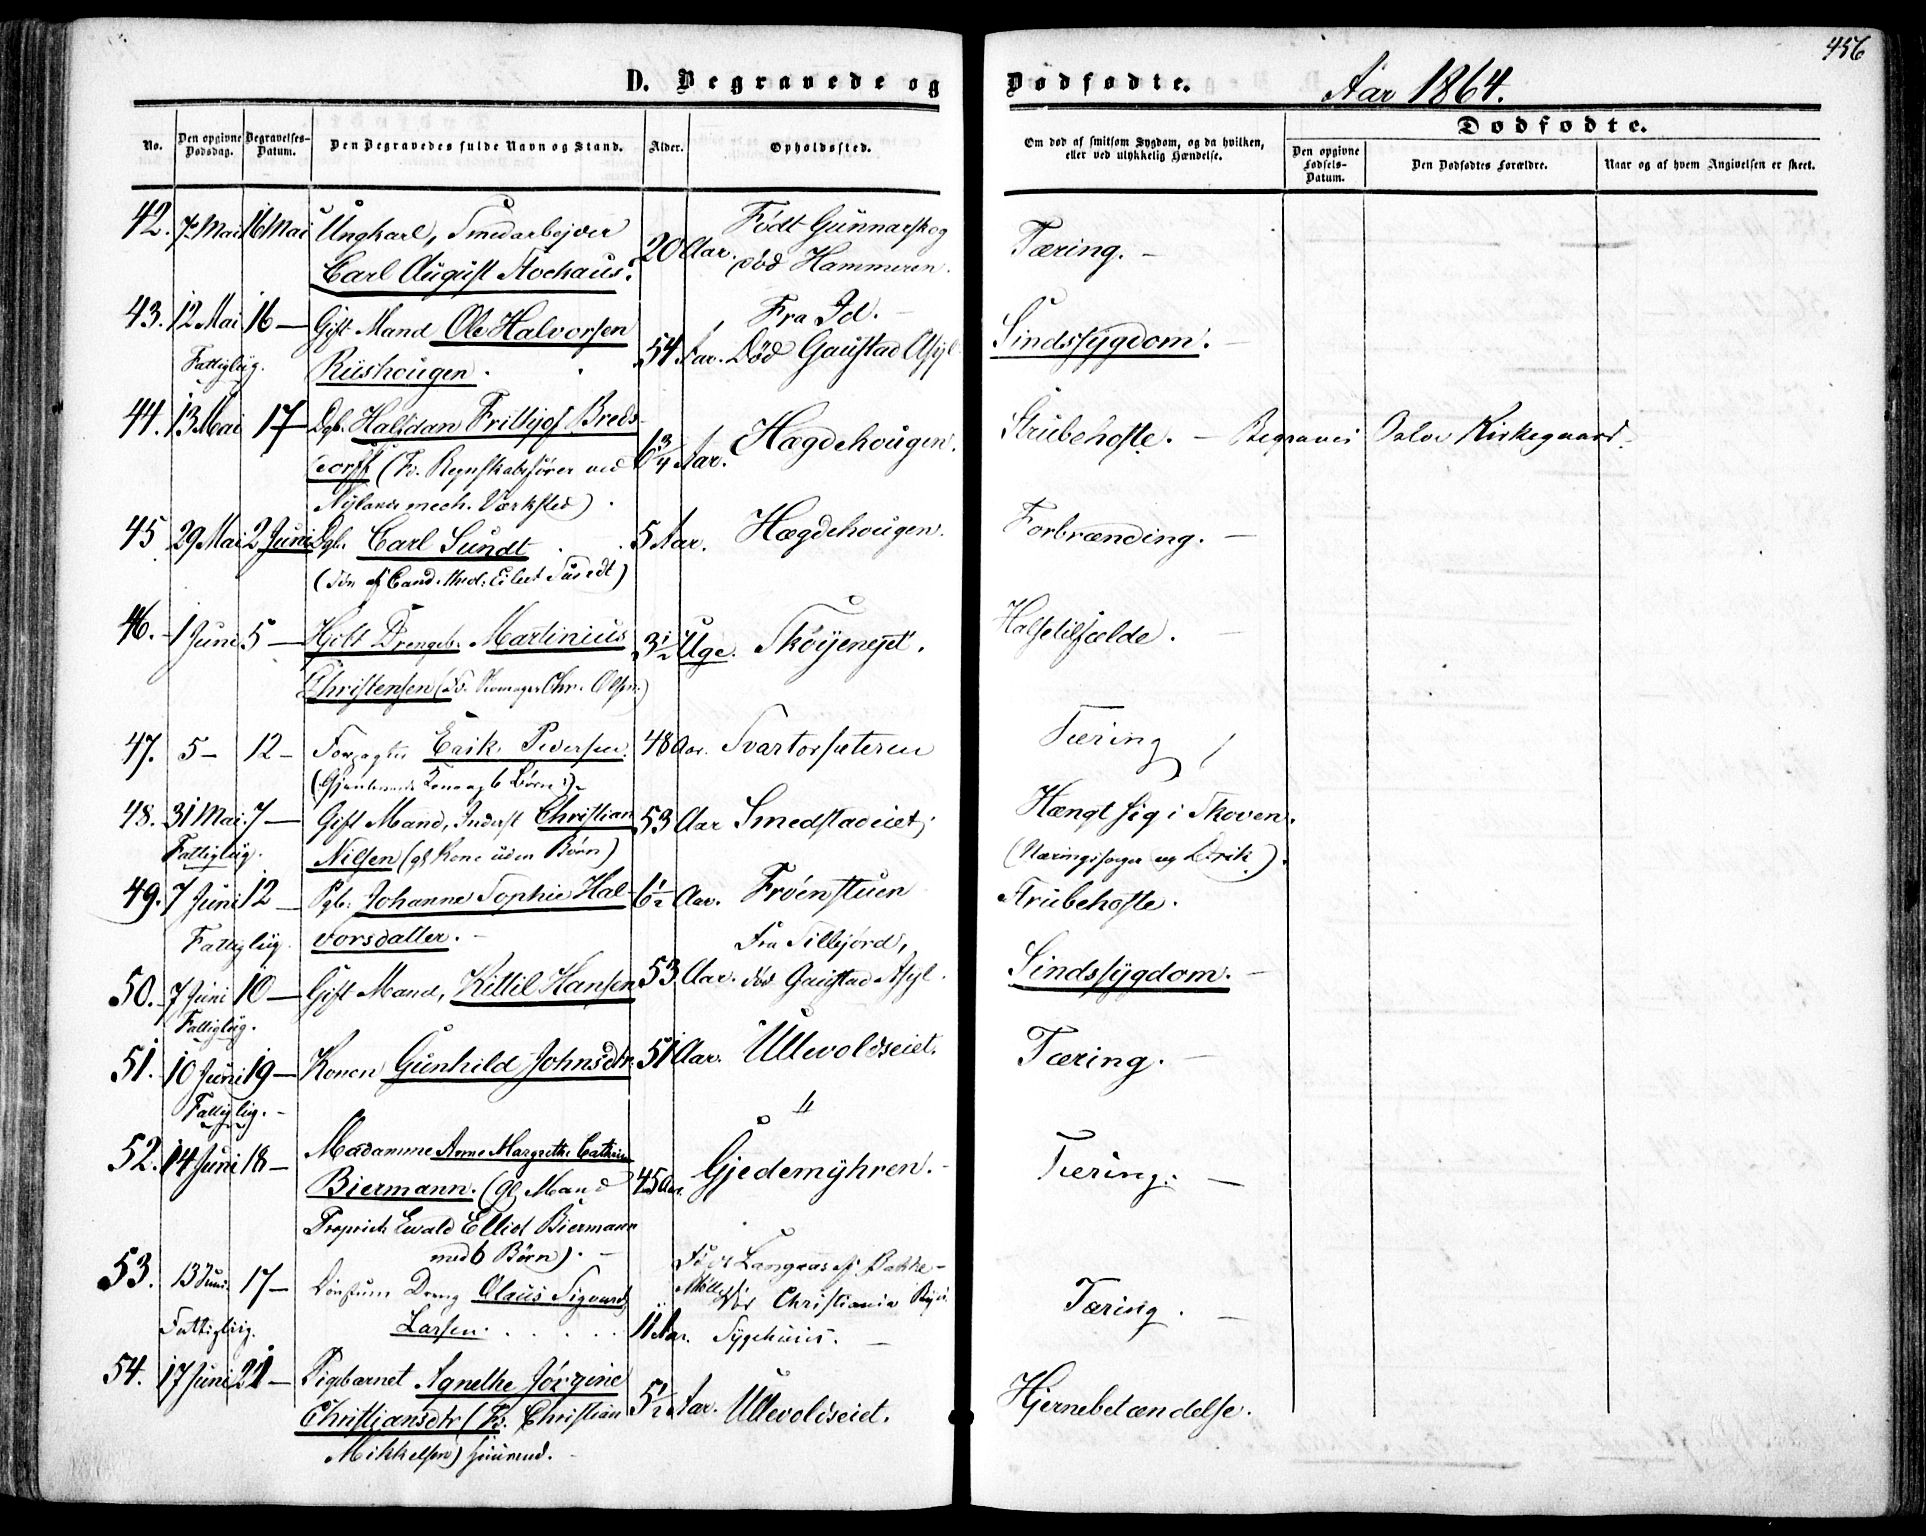 456
D. Begravede og Dødfødte. Aar 1864.
No. Den opgivne Dødsdag. Begravelses-Datum. Den Begravedes fulde Navn og Stand. Alder. Opholdssted. Om død af smitsom Sygdom, og da hvilken, eller ved ulykkelig Hændelse.
Dødfødte.
Den opgivne Fødsels-Datum. Den Dødfødtes Forældre. Naar og af hvem Angivelsen er skeet.
42. 7 Mai 16 Mai Ungkarl, Smedarbejder 20 Aar. Født Gunnarskog Tæring. —
Carl August Stochaus. død Hammeren.
43. 12 Mai 16 — Gift Mand Ole Halvorsen 54 Aar. Fra Id. — Sindssygdom. —
Fattiglig. Riishougen. Død Gaustad Asyl
44. 13 Mai 17 — Dgb. Halfdan Frithjof Breds- 6 3/4 Aar. Hægdehougen. Strubehoste. — Begravet Oslo Kirkegaard.
dorff (F. Regnskabsfører ved
Nylands mech. Værksted).
45 29 Mai 2 Juni Dgb. Carl Sundt 5 Aar. Hægdehougen. Forbrænding. —
(Søn af Cand. Med: Eilert Sundt)
46. 1 Juni 5 — Hjdt Drengeb. Martinius 3 1/2 Uge. Skøyenejet. Halsetilfælde. —
Christensen (F. Chr. Olsen)
47. 5 — 12 — Erik Pedersen. 48 Aar. Svartorseteren Tæring
(Gjenlevende Kone og 6 Børn).
48. 31 Mai. 7 — Gift Mand, Inderst Christian 53 Aar Smedstadeiet Hængt sig i Skoven.
Fattiglig. Nilsen (gl Kone uden Børn) (Næringssorger og Drik).
49. 7 Juni 12 — Pgb. Johanne Sophie Hal- 6 1/2 Aar. Frøenstuen Strubehoste.
Fattiglig vorsdatter. —
50. 7 Juni 10 — Gift Mand, Kittil Hansen 53 Aar. Fra Sillejord, død Gaustad Asyl. Sindssygdom. —
Fattiglig.
51. 10 Juni 19 — Konen Gunhild Johnsdtr. 51 Aar. Ullevoldseiet. Tæring. —
Fattiglig. —
52. 14 Juni 18 — Madamme Anne Margrethe Cathrine 45 Aar. Gjedemyhren. — Tæring. —
Biermann. (gl. Mand
Propriet. Ewald Ellid Biermann
med 6 Børn). —
53. 13 Juni. 17 — Dreng Olaus Sigvard 11 Aar. Født Langaas Bakke- Tæring. —
Fattiglig. Larsen. død Christiania
Sygehuus. —
54. 17 Juni 21 — Pigebarnet Agnethe Jørgine 5 1/2 Aar. Ullevoldseiet. Hjernebetændelse.
Christiansdtr (F. Christian
Mikkelsen) Huusmd. —